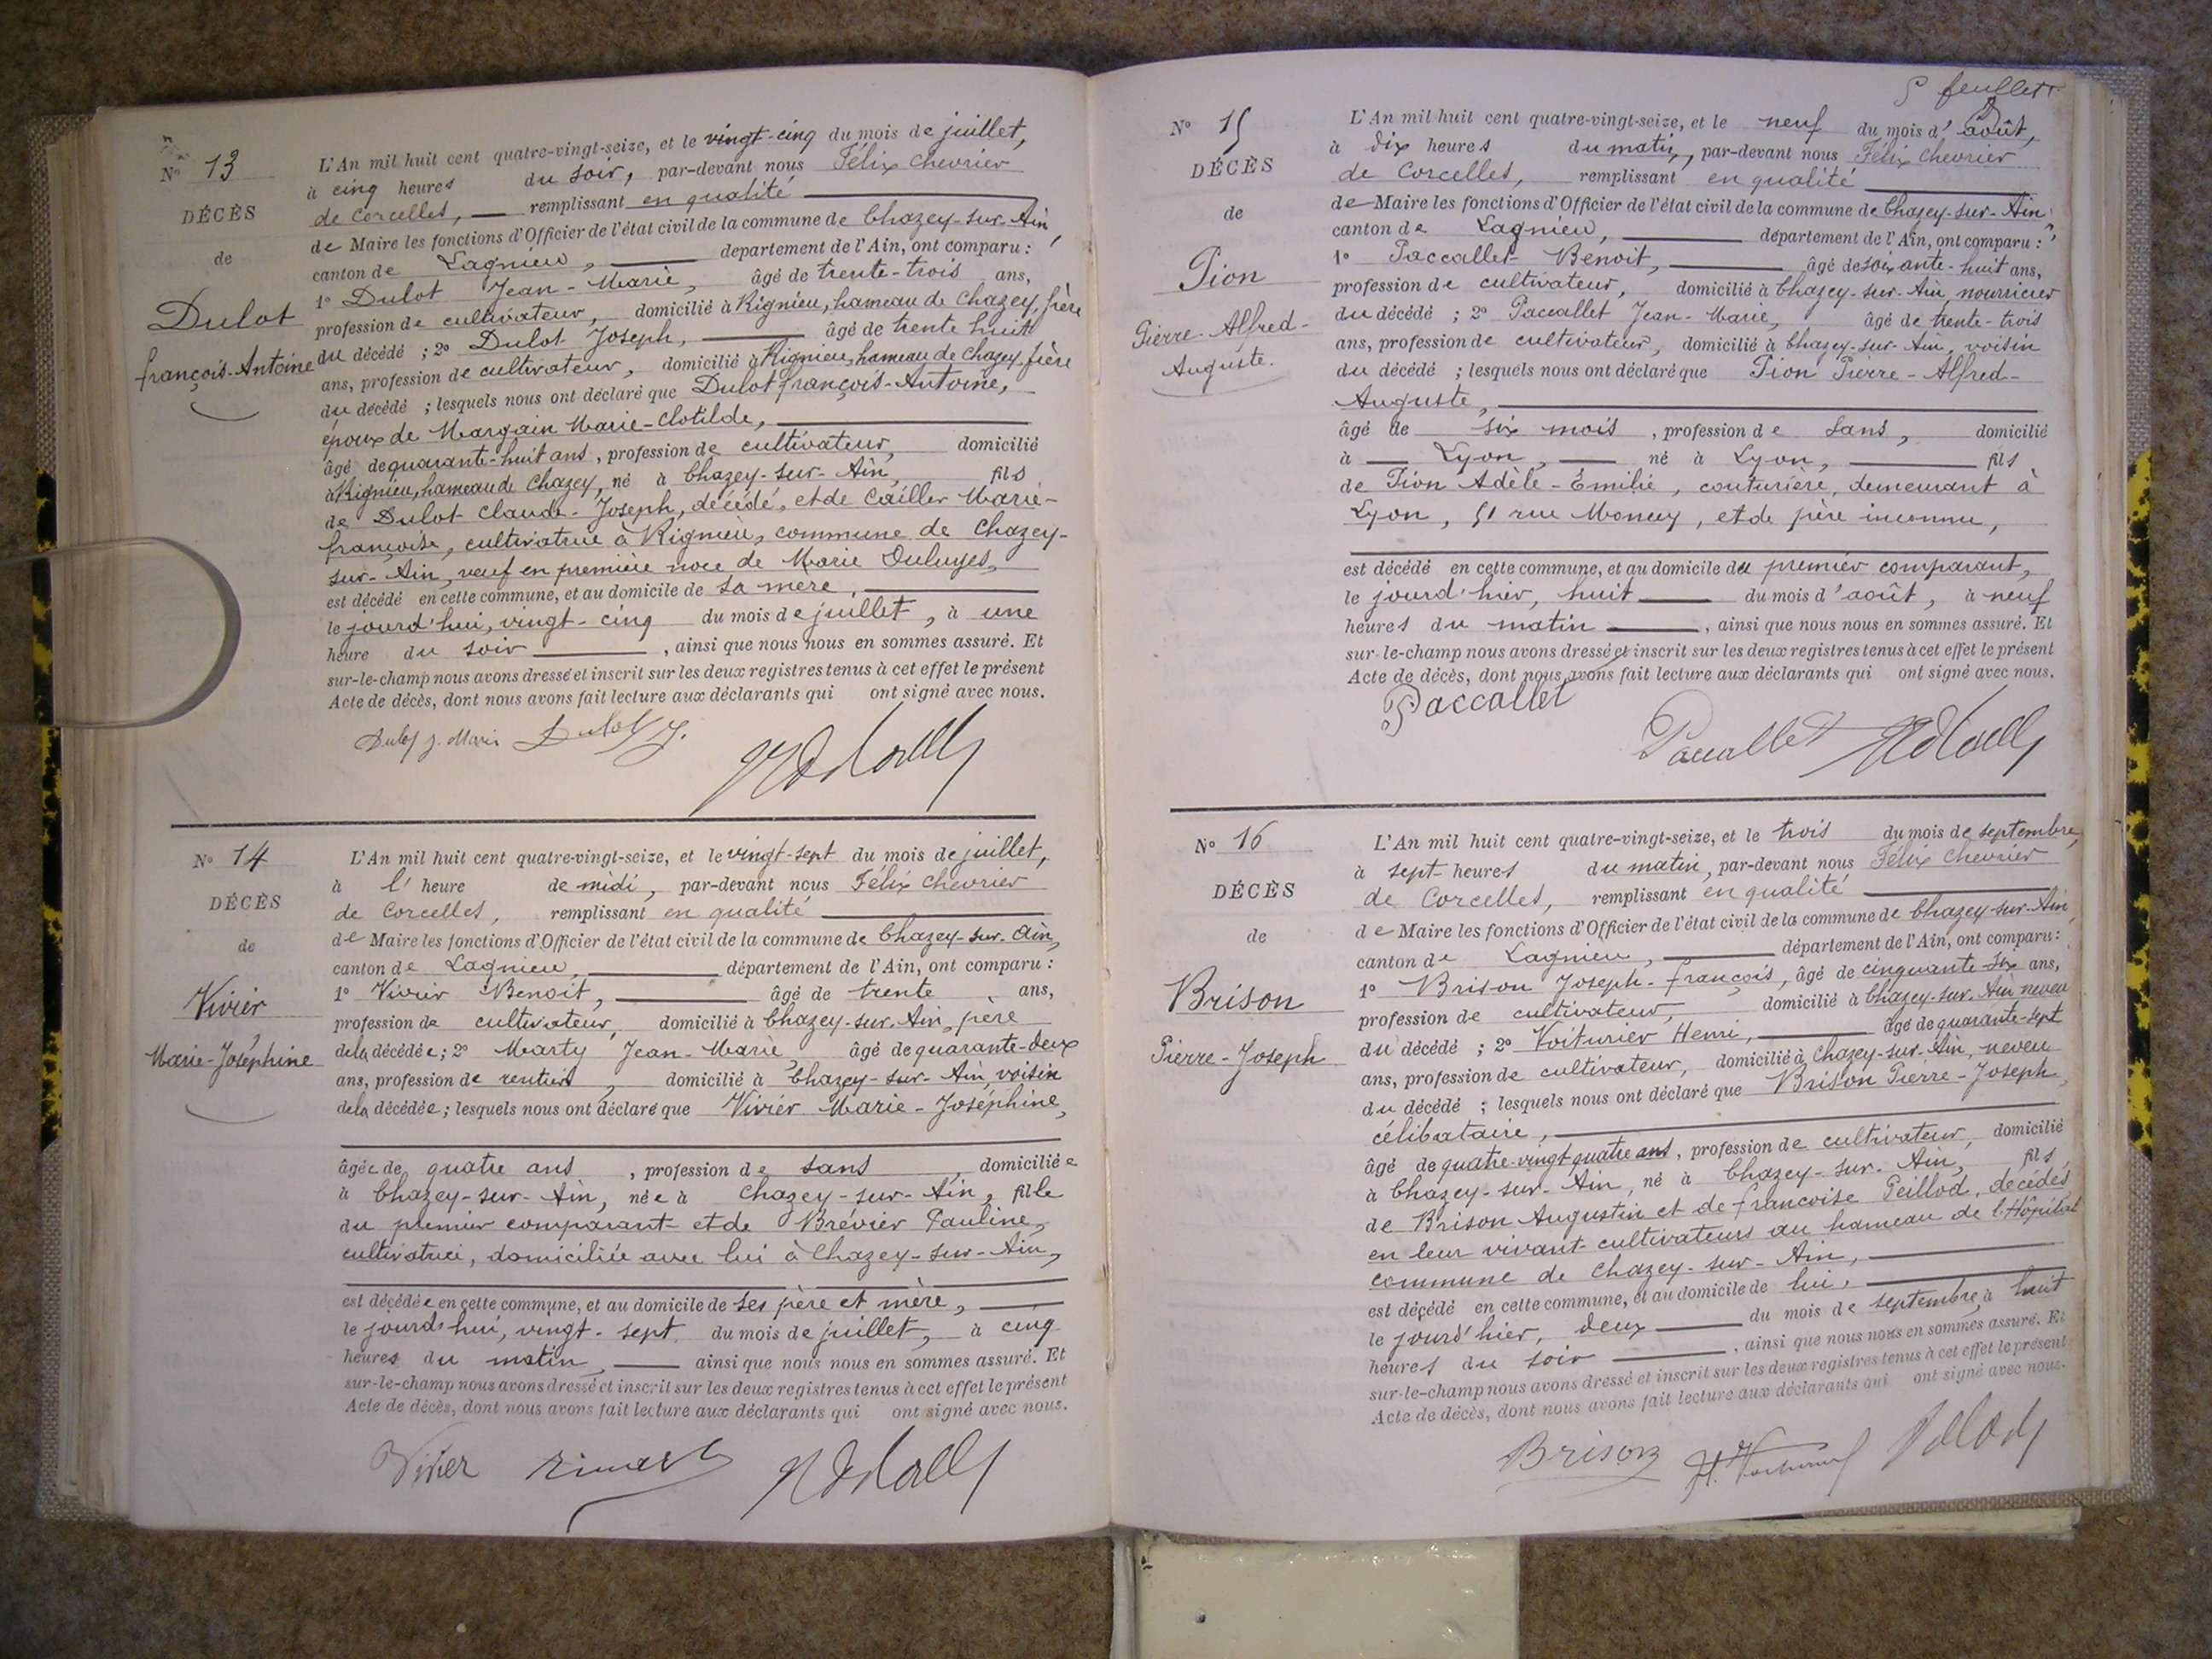 N° 13
DÉCÈS
de
Dulot
françois-Antoine
L'An mil huit cent quatre-vingt-seize, et le vingt-cinq du mois de juillet,
à cinq heures du soir, par-devant nous Félix Chevrier
de Corcelles, remplissant en qualité
de Maire les fonctions d'Officier de l'état civil de la commune de Chazey-sur-Ain,
canton de Lagnieu, departement de l'Ain, ont comparu :
1° Dulot Jean-Marie, âgé de trente-trois ans,
profession de cultivateur, domicilié à Rignieu, hameau de Chazey, frère
du décédé ; 2° Dulot Joseph, âgé de trente huit
ans, profession de cultivateur, domicilié à Rignieu, hameau de Chazey, frère
du décédé ; lesquels nous ont déclaré que Dulot françois-Antoine,
époux de Margain Marie-Clotilde,
âgé de quarante-huit ans, profession de cultivateur, domicilié
à Rignieu, hameau de Chazey, né à Chazey-sur-Ain, fils
de Dulot Claude-Joseph, décédé, et de Cailler Marie-
françoise, cultivatrice à Rignieu, commune de Chazey-
sur-Ain, veuf en première noce de Marie
est décédé en cette commune, et au domicile de sa mère,
le jourd'hui, vingt-cinq du mois de juillet, à une
heure du soir, ainsi que nous nous en sommes assuré. Et
sur-le-champ nous avons dressé et inscrit sur les deux registres tenus à cet effet le présent
Acte de décès, dont nous avons fait lecture aux déclarants qui ont signé avec nous.
Dulot J. Marie Dulot J.
N° 14
DÉCÈS
de
Vivier
Marie-Joséphine
L'An mil huit cent quatre-vingt-seize, et le vingt-sept du mois de juillet,
à l' heure de midi, par-devant nous Félix Chevrier
de Corcelles, remplissant en qualité
de Maire les fonctions d'Officier de l'état civil de la commune de Chazey-sur-Ain,
canton de Lagnieu, département de l'Ain, ont comparu :
1° Vivier Benoit, âgé de trente ans,
profession de cultivateur, domicilié à Chazey-sur-Ain, père
de la décédée ; 2° Marty Jean-Marie, âgé de quarante-deux
ans, profession de rentier, domicilié à Chazey-sur-Ain, voisin
de la décédée ; lesquels nous ont déclaré que Vivier Marie-Joséphine,
âgée de quatre ans, profession de sans, domiciliée
à Chazey-sur-Ain, née à Chazey-sur-Ain, fille
du premier comparant et de Brévier Pauline,
cultivatrice, domiciliée avec lui à Chazey-sur-Ain,
est décédée en cette commune, et au domicile de ses père et mère,
le jourd'hui, vingt-sept du mois de juillet, à cinq
heures du matin, ainsi que nous nous en sommes assuré. Et
sur-le-champ nous avons dressé et inscrit sur les deux registres tenus à cet effet le présent
Acte de décès, dont nous avons fait lecture aux déclarants qui ont signé avec nous.
Vivier
5 feuillet
N° 15
DÉCÈS
de
Pion
Pierre-Alfred-
Auguste.
L'An mil huit cent quatre-vingt-seize, et le neuf du mois d'août,
à dix heures du matin, par-devant nous Félix Chevrier
de Corcelles, remplissant en qualité
de Maire les fonctions d'Officier de l'état civil de la commune de Chazey-sur-Ain,
canton de Lagnieu, département de l'Ain, ont comparu :
1° Paccallet Benoit, âgé de soixante-huit ans,
profession de cultivateur, domicilié à Chazey-sur-Ain, nourricier
du décédé ; 2° Paccallet Jean-Marie, âgé de trente-trois
ans, profession de cultivateur, domicilié à Chazey-sur-Ain, voisin
du décédé ; lesquels nous ont déclaré que Pion Pierre-Alfred-
Auguste,
âgé de six mois, profession de sans, domicilié
à Lyon, né à Lyon, fils
de Pion Adèle-Emilie, couturière, demeurant à
Lyon, 51 rue Moncey, et de père inconnu,
est décédé en cette commune, et au domicile du premier comparant,
le jourd'hier, huit du mois d'août, à neuf
heures du matin, ainsi que nous nous en sommes assuré. Et
sur-le-champ nous avons dressé et inscrit sur les deux registres tenus à cet effet le présent
Acte de décès, dont nous avons fait lecture aux déclarants qui ont signé avec nous.
Paccallet
Paccallet
N° 16
DÉCÈS
de
Brison
Pierre-Joseph
L'An mil huit cent quatre-vingt-seize, et le trois du mois de septembre,
à sept heures du matin, par-devant nous Félix Chevrier
de Corcelles, remplissant en qualité
de Maire les fonctions d'Officier de l'état civil de la commune de Chazey-sur-Ain,
canton de Lagnieu, département de l'Ain, ont comparu :
1° Brison Joseph-françois, âgé de cinquante-six ans,
profession de cultivateur, domicilié à Chazey-sur-Ain neveu
du décédé ; 2° Voiturier Henri, âgé de quarante-sept
ans, profession de cultivateur, domicilié à Chazey-sur-Ain, neveu
du décédé ; lesquels nous ont déclaré que Brison Pierre-Joseph,
célibataire,
âgé de quatre-vingt quatre ans, profession de cultivateur, domicilié
à Chazey-sur-Ain, né à Chazey-sur-Ain, fils
de Brison Augustin et de françoise Peillod, décédés
en leur vivant cultivateurs au hameau de l'Hôpital
commune de Chazey-sur-Ain,
est décédé en cette commune, et au domicile de lui,
le jourd'hier, deux du mois de septembre, à huit
heures du soir, ainsi que nous nous en sommes assuré. Et
sur-le-champ nous avons dressé et inscrit sur les deux registres tenus à cet effet le présent
Acte de décès, dont nous avons fait lecture aux déclarants qui ont signé avec nous.
Brison